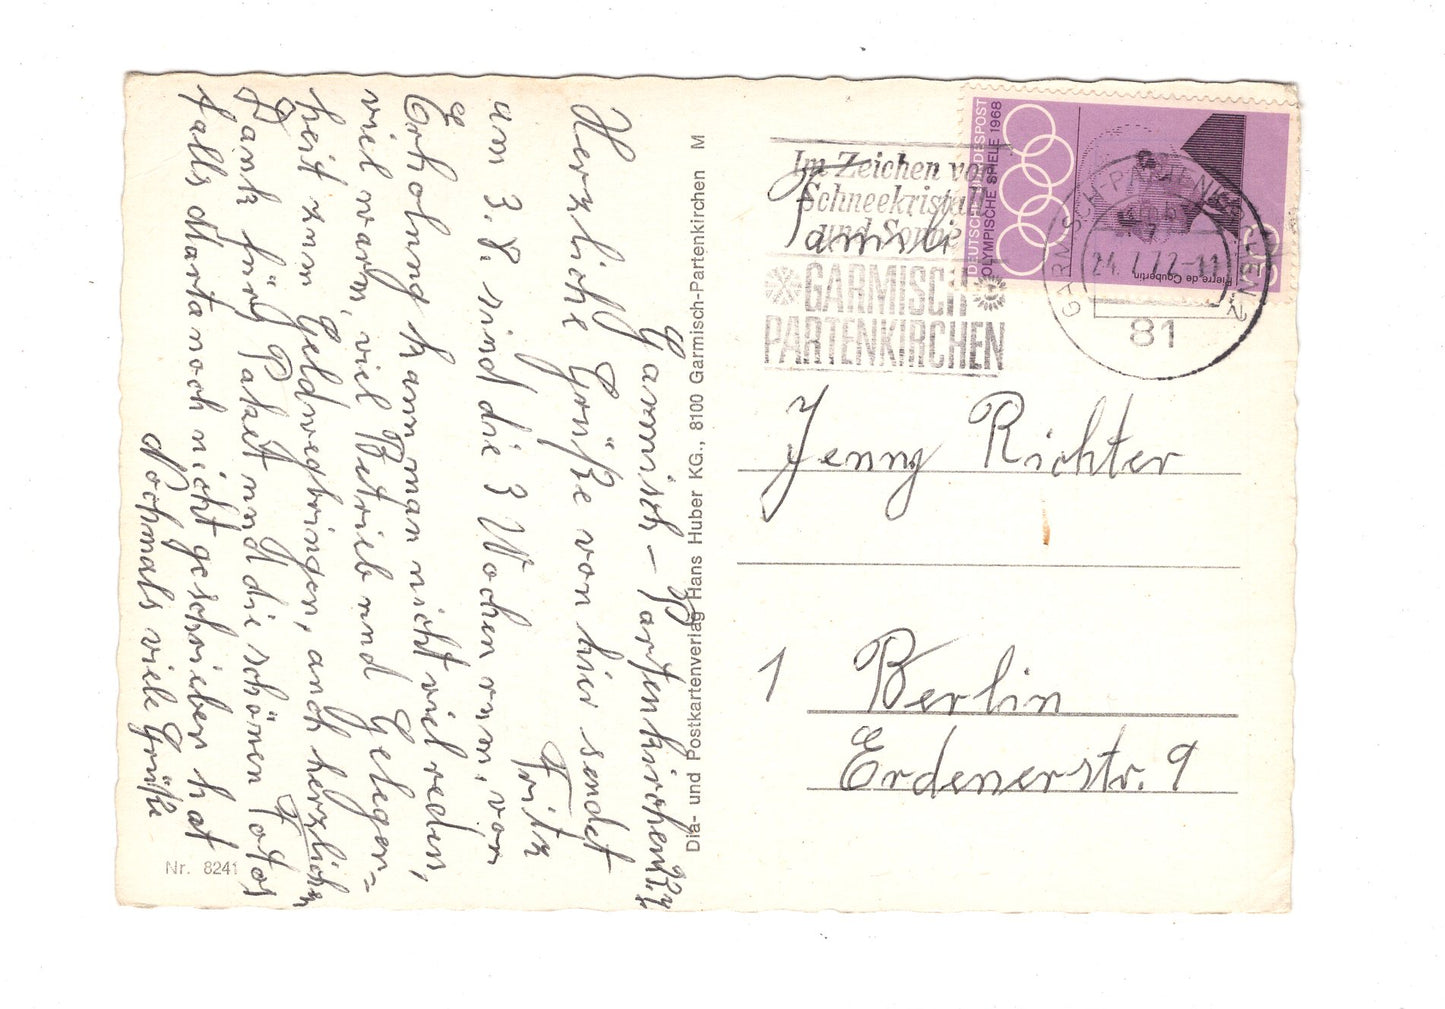 Garmisch-Partenkirchen
Herzliche Grüße von hier sendet
Fritz
um 3.8. sind die 3 Wochen rum, von
Erholung kann man nicht viel reden,
viel waren, viel Betrieb und Gelegen=
heit zum Geldwegbringen, auch herzlichen
Dank fürs Paket und die schönen Fotos
falls Marta noch nicht geschrieben hat
Nochmals viele Grüße
Nr. 8241
Dia- und Postkartenverlag Hans Huber KG., 8100 Garmisch-Partenkirchen M
Im Zeichen von
Schneekristall
und Sonne
GARMISCH
PARTENKIRCHEN
DEUTSCHE BUNDESPOST
OLYMPISCHE SPIELE 1968
Pierre de Coubertin
GARMISCH-PARTENKIRCHEN 2
24.7.72-11
81
Familie
Jenny Richter
1 Berlin
Erdenerstr. 9